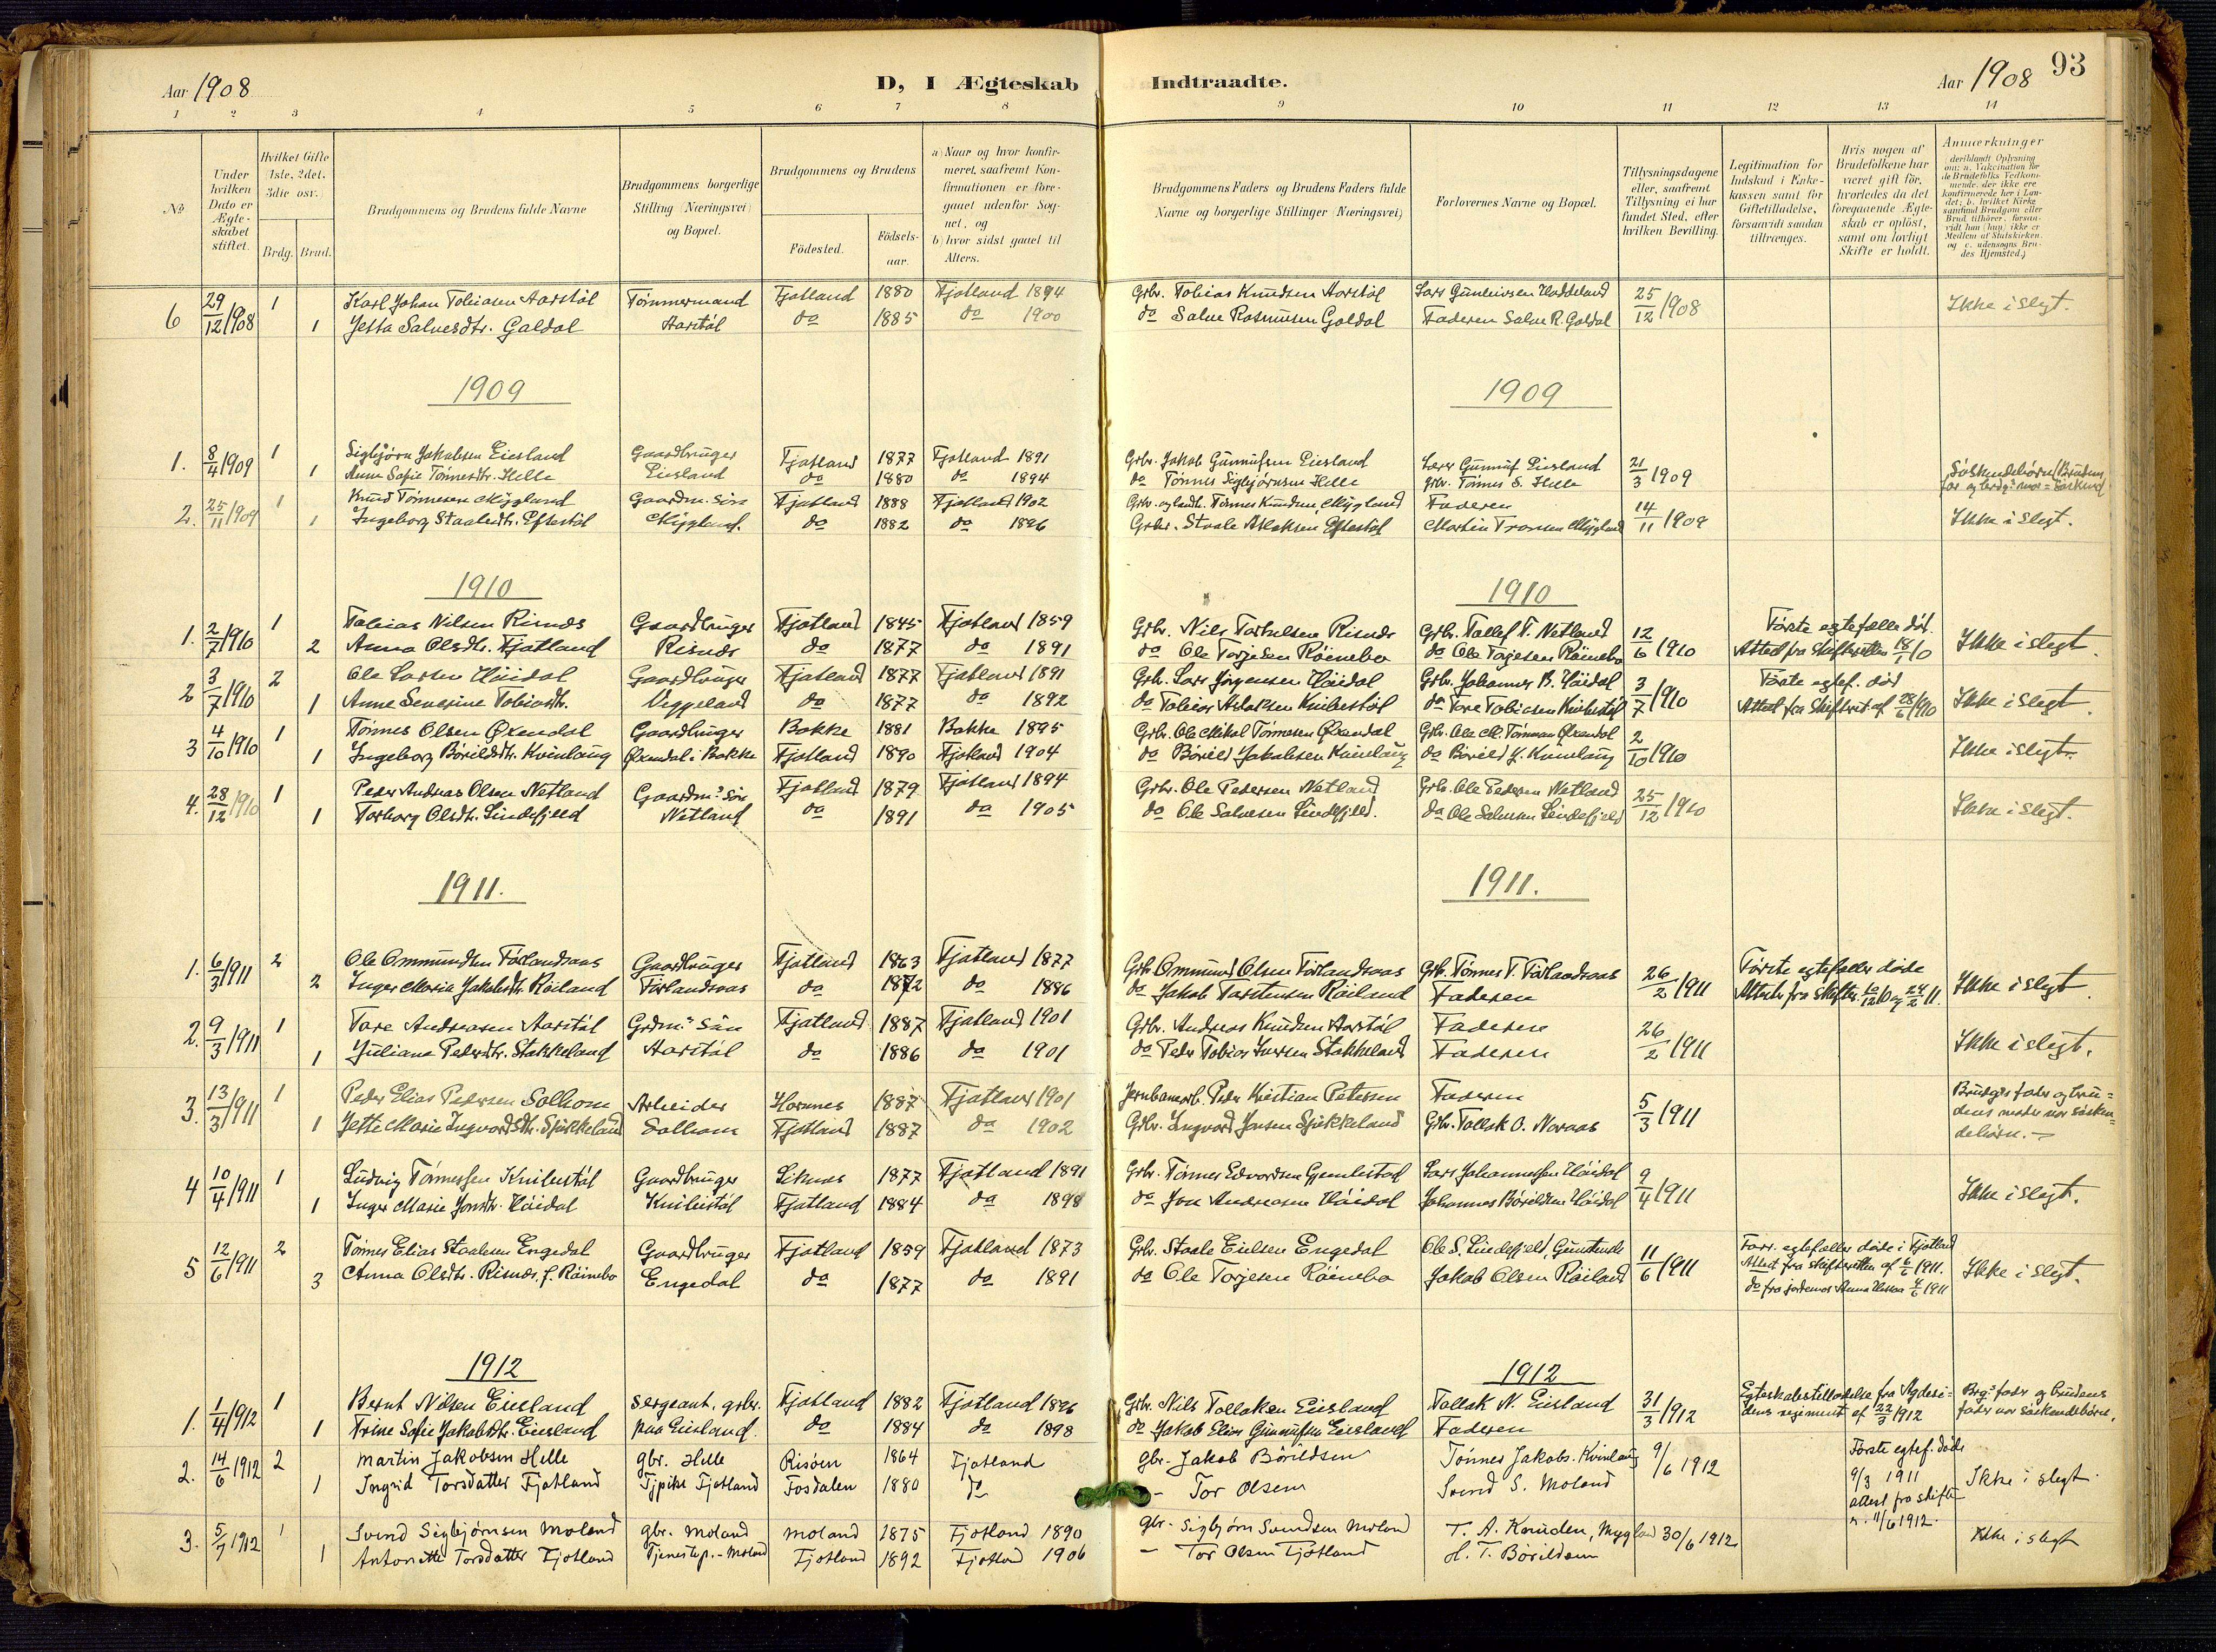 Aar 1908
D, I Ægteskab Indtraadte.
Aar 1908 93
1 2 3 4 5 6 7 8 9 10 11 12 13 14
No
Under hvilken Dato er Ægteskabet stiftet.
Hvilket Gifte (1ste, 2det, 3die osv.
Brdg. Brud.
Brudgommens og Brudens fulde Navne
Brudgommens borgerlige Stilling (Næringsvei) og Bopæl.
Brudgommens og Brudens
Födested.
Födsels-aar.
a) Naar og hvor konfirmeret, saafremt Konfirmationen er foregaaet udenfor Sognet, og
b) hvor sidst gaaet til Alters.
Brudgommens Faders og Brudens Faders fulde Navne og borgerlige Stillinger (Næringsvei)
Forlovernes Navne og Bopæl.
Tillysningsdagene eller, saafremt Tillysning ei har fundet Sted, efter hvilken Bevilling.
Legitimation for Indskud i Enkekassen samt for Giftetilladelse, forsaavidt saadan tiltrænges.
Hvis nogen af Brudefolkene har været gift för, hvorledes da det foregaaende Ægteskab er oplöst, samt om lovligt Skifte er holdt.
Anmærkninger (deriblandt Oplysning om: a. Vakcination for de Brudefolks Vedkommende, der ikke ere konfirmerede her i Landet; b. hvilket Kirkesamfund Brudgom eller Brud tilhörer, forsaavidt han (hun) ikke er Medlem af Statskirken, og c. udensogns Brudes Hjemsted.)
6 29/12 1908 1 Karl Johan Tobiasen Aarstöl Tömmermand Fjotland 1880 Fjotland 1894 Grbr. Tobias Knudsen Aarstöl Lars Gunleivsen Haddeland 25/12 1908 Ikke i slegt.
1 Jetta Salvesdtr. Galdal Aarstöl do 1885 do 1900 do Salve Rasmusen Galdal Faderen Salve R. Galdal
1909 1909
1. 8/4 1909 1 Sigbjörn Jakobsen Eiesland Gaardbruger Fjotland 1877 Fjotland 1891 Grbr. Jakob Gunnufsen Eiesland Lars Gunnuf Eiesland 21/3 1909 Söskendebörn (Brudens
1 Anne Sofie Tönnesdtr. Helle Eiesland do 1880 do 1894 do Tönnes Sigbjörnsen Helle Grbr. Tönnes S. Helle far og brdg.s mor = söskend
2. 25/11 1909 1 Knud Tönnesen Mygland Gaardm. sön Fjotland 1888 Fjotland 1902 Grbr. og landh. Tönnes Knudsen, Mygland Faderen 14/11 1909 Ikke i slegt.
1 Ingeborg Staalesdtr. Eftestöl Mygland. do 1882 do 1896 Grbr. Staale Aslaksen Eftestöl Martin Tronsen Mygland
1910 1910
1. 2/7 1910 1 Tobias Nilsen Risnes Gaardbruger Fjotland 1845 Fjotland 1859 Grbr. Nils Torkelsen Risnes Grbr. Tollef T. Netland 12/6 1910 Förste egtefælle död. Ikke i slegt
2 Anna Olsdtr. Fjotland Risnes do 1877 do 1891 do Ole Torjesen Röinebo do Ole Torjesen Röinebo Attest fra skifteretten 18/6 10
2 3/7 1910 2 Ole Larsen Höidal Gaardbruger Fjotland 1877 Fjotland 1891 Grbr. Lars Jörgensen Höidal Grbr. Johannes B. Höidal 3/7 1910 Förste egtef. död Ikke i slegt.
1 Anne Severine Tobiasdtr. Veggeland do 1877 do 1892 do Tobias Aslaksen Knibestöl do Tore Tobiasen Knibestöl Attest fra skifteret af 28/6 1910
3 4/10 1910 1 Tönnes Olsen Øxendal Gaardbruger Bakke 1881 Bakke 1895 Grbr. Ole Mikal Tönnesen Øxendal Grbr. Ole M. Tönnesen Øxendal 2/10 1910 Ikke i slegt.
1 Ingeborg Börildsdtr. Kvinlaug Øxendal i Bakke Fjotland 1890 Fjotland 1904 do Börild Jakobsen Kvinlaug do Börild J. Kvinlaug
4. 28/12 1910 1 Peder Andreas Olsen Netland Gaardm.s sön Fjotland 1879 Fjotland 1894 Grbr. Ole Pedersen Netland Grbr. Ole Pedersen Netland 25/12 1910 Ikke i slegt.
1 Torborg Olsdtr. Lindefjeld Netland do 1891 do 1905 do Ole Salvesen Lindefjeld. do Ole Salvesen Lindefjeld
1911. 1911.
1. 6/3 1911 2 Ole Ommundsen Förlandsaas Gaardbruger Fjotland 1863 Fjotland 1877 Grbr. Ommund Olsen Förlandsaas Grb. Tönnes T. Förlandsaas 26/2 1911 Förste egtefæller döde Ikke i slegt.
2 Inger Maria Jakobsdtr. Röiland Förlandsaas do 1872 do 1886 do Jakob Torstensen Röiland Faderen Attester fra skifter. 10/12 10 og 24/2 11.
2. 9/3 1911 1 Tore Andreasen Aarstöl Grdm.s sön Fjotland 1887 Fjotland 1901 Grbr. Andreas Knudsen Aarstöl Faderen 26/2 1911 Ikke i slegt.
1 Juliane Pedersdtr. Stakkeland Aarstöl do 1886 do 1901 do Peder Tobias Iversen Stakkeland Faderen
3. 13/3 1911 1 Peder Elias Pedersen Solhom Arbeider Hornnes 1887 Fjotland 1901 Jernbanearb. Peder Kristian Petersen Faderen 5/3 1911 Brudgs fader og bru=
1 Jette Marie Ingvardsdtr. Sjökkeland Solhom Fjotland 1887 do 1902 Grbr. Ingvard Jensen Sjökkeland Grbr. Tollak O. Noraas dens moder var sösken=
debörn.
4 10/4 1911 1 Ludvig Tönnessen Knibestöl Gaardbruger Liknes 1877 Fjotland 1891 Grbr. Tönnes Edvardsen Gjemlestad Lars Johannessen Höidal 9/4 1911 Ikke i slegt.
1 Inger Marie Jonsdtr. Höidal Knibestöl Fjotland 1884 do 1898 do Jon Andreasen Höidal Johannes Börildsen Höidal
5 12/6 1911 2 Tönnes Elias Staalesen Engedal Gaardbruger Fjotland 1859 Fjotland 1873 Grbr. Staale Eielsen Engedal Ole S. Lindefjeld, 11/6 1911 Forr. egtefæller döde i Fjotland Ikke i slegt.
3 Anna Olsdtr. Risnes, f. Röinebo Engedal do 1877 do 1891 do Ole Torjesen Röinebo Jakob Olsen Röiland Attest fra skifteretten af 6/6 1911.
do fra jordemor Anna 4/6 1911
1912 1912
1. 1/4 1912 1 Bernt Nilsen Eiesland Sergeant, grbr. Fjotland 1882 Fjotland 1896 Grbr. Nils Tollaksen Eiesland Tollak N. Eiesland 31/3 1912 Egteskabstilladelse fra Agdesi= Brg.s fader og brudens
1 Trine Sofie Jakobsdtr. Eiesland paa Eiesland. do 1884 do 1898 do Jakob Elias Gunnufsen Eiesland Faderen dens regiment af 22/3 1912 fader var söskendebörn.
2. 14/6 1912 2 Martin Jakobsen Helle gbr. Helle Risöen 1864 Fjotland gbr. Jakob Börildsen Tönnes Jakobs. Kvinlaug 9/6 1912 Förste egtef. döde
1 Ingrid Torsdatter Fjotland Tjpike Fjotland Fosdalen 1880 do - Tor Olsen Svend S. Moland 9/3 1911 Ikke i slegt.
attest fra skifte
r. 11/6 1912.
3. 5/7 1912 1 Svend Sigbjörnsen Moland gbr. Moland Moland 1875 Fjotland 1890 gbr. Sigbjörn Svendsen Moland T. A. Knuden, Mygland 30/6 1912 Ikke i slegt
1 Antonette Torsdatter Fjotland Tjenestep. - Moland Fjotland 1892 Fjotland 1906 - Tor Olsen Fjotland H. T. Börildsen